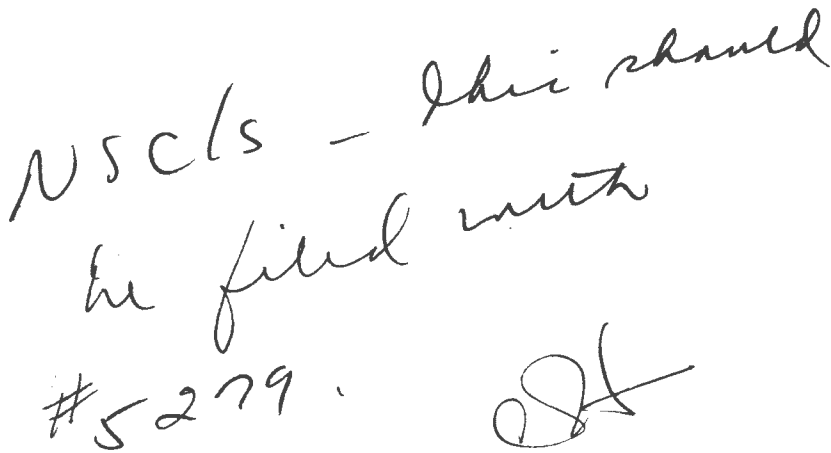 NSC/S – this should
be filed with
#5279.